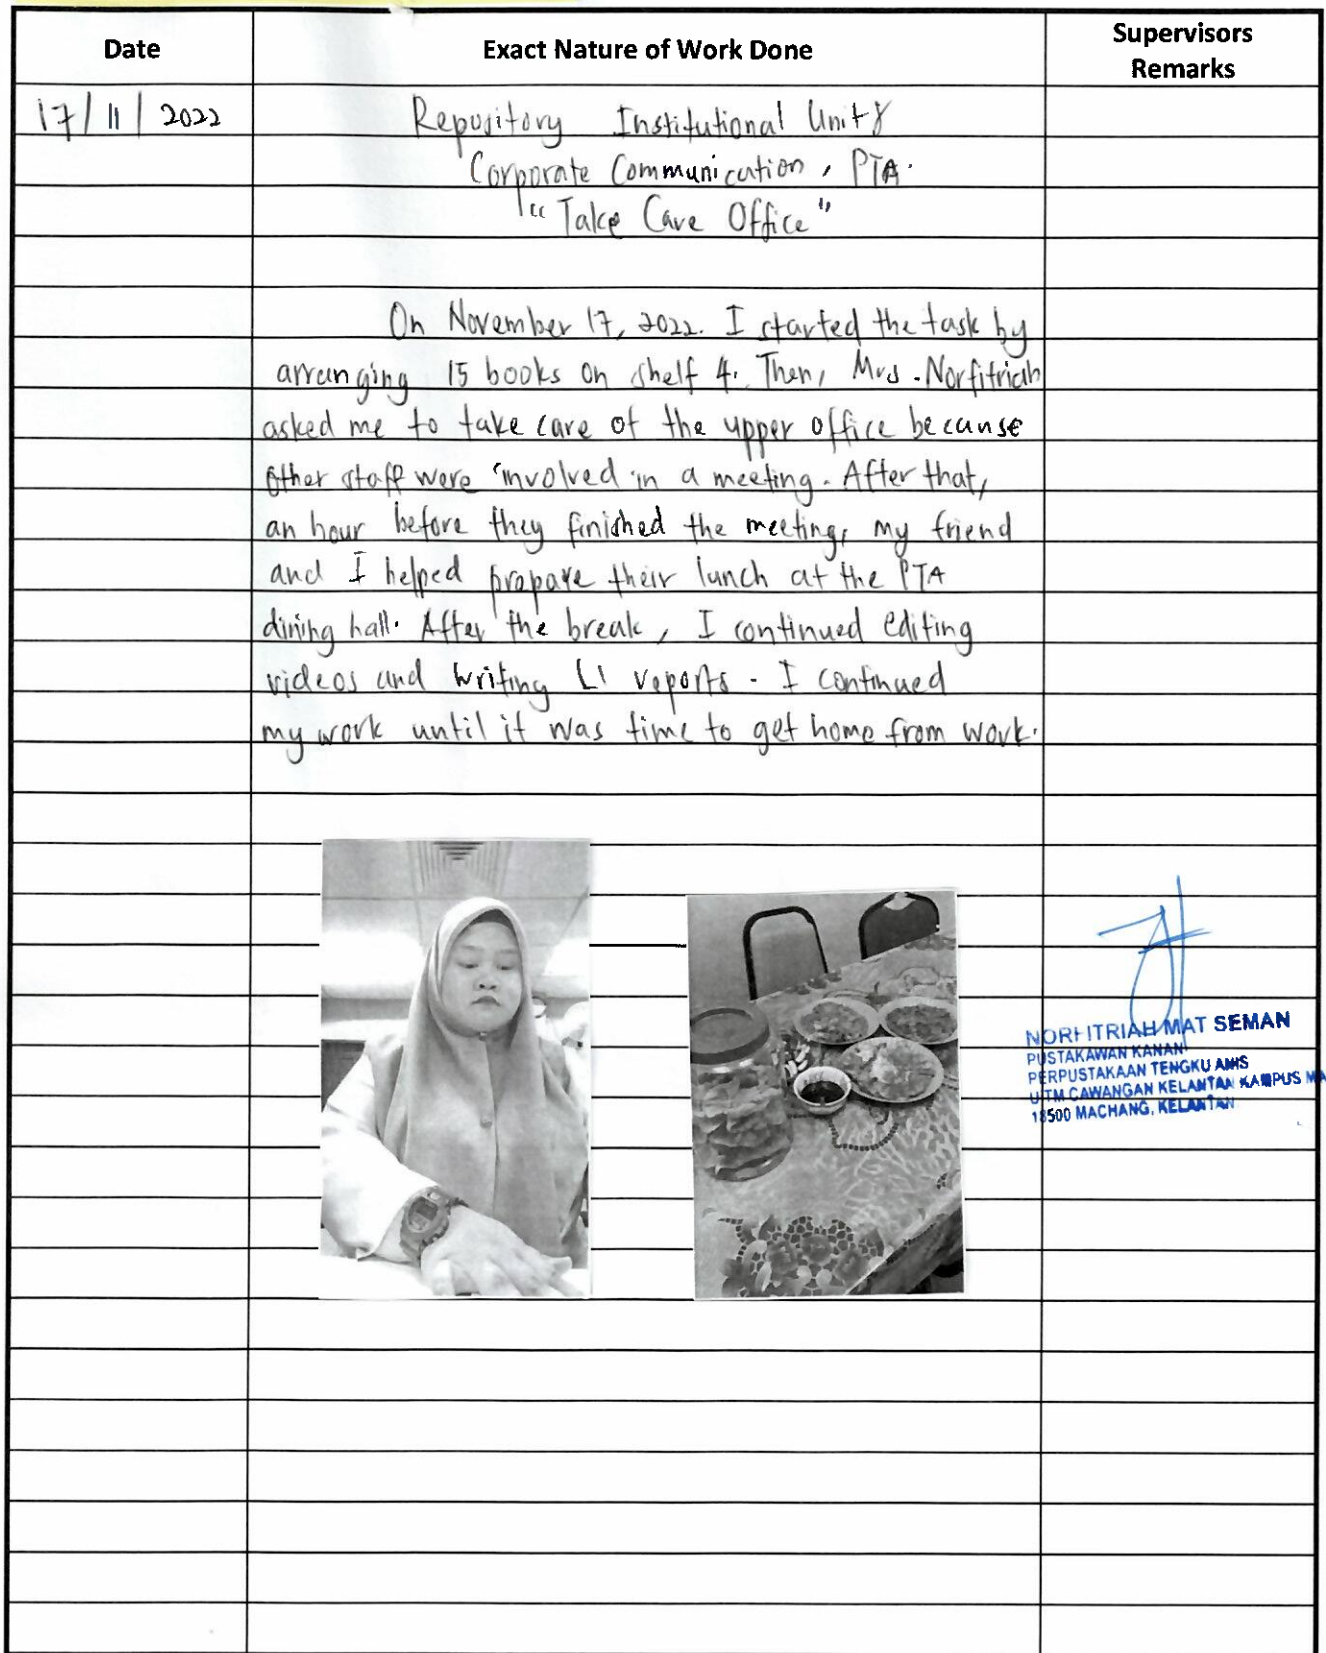 Date
Exact Nature of Work Done
Supervisors
Remarks
17/11/2022
Repository Institutional Unit &
Corporate Communication, PTA.
"Take Care Office"
On November 17, 2022. I started the task by
arranging 15 books on shelf 4. Then, Mrs. Norfitriah
asked me to take care of the upper office because
other staff were involved in a meeting. After that,
an hour before they finished the meeting, my friend
and I helped prepare their lunch at the PTA
dining hall. After the break, I continued editing
videos and writing LI reports. I continued
my work until it was time to get home from work.
NORFITRIAH MAT SEMAN
PUSTAKAWAN KANAN
PERPUSTAKAAN TENGKU ANIS
UiTM CAWANGAN KELANTAN KAMPUS MA
18500 MACHANG, KELANTAN